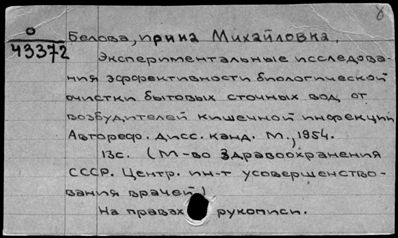 О
43372
Белова, Ирина Михайловна.
Экспериментальные исследова-
ния эффективности биологической
очистки бытовых сточных вод от
возбудителей кишечной инфекции
Автореф. дисс. канд. М., 1954.
13с. (М-во здравоохранения
СССР. Центр. ин-т усовершенство-
вания врачей)
На правах рукописи.